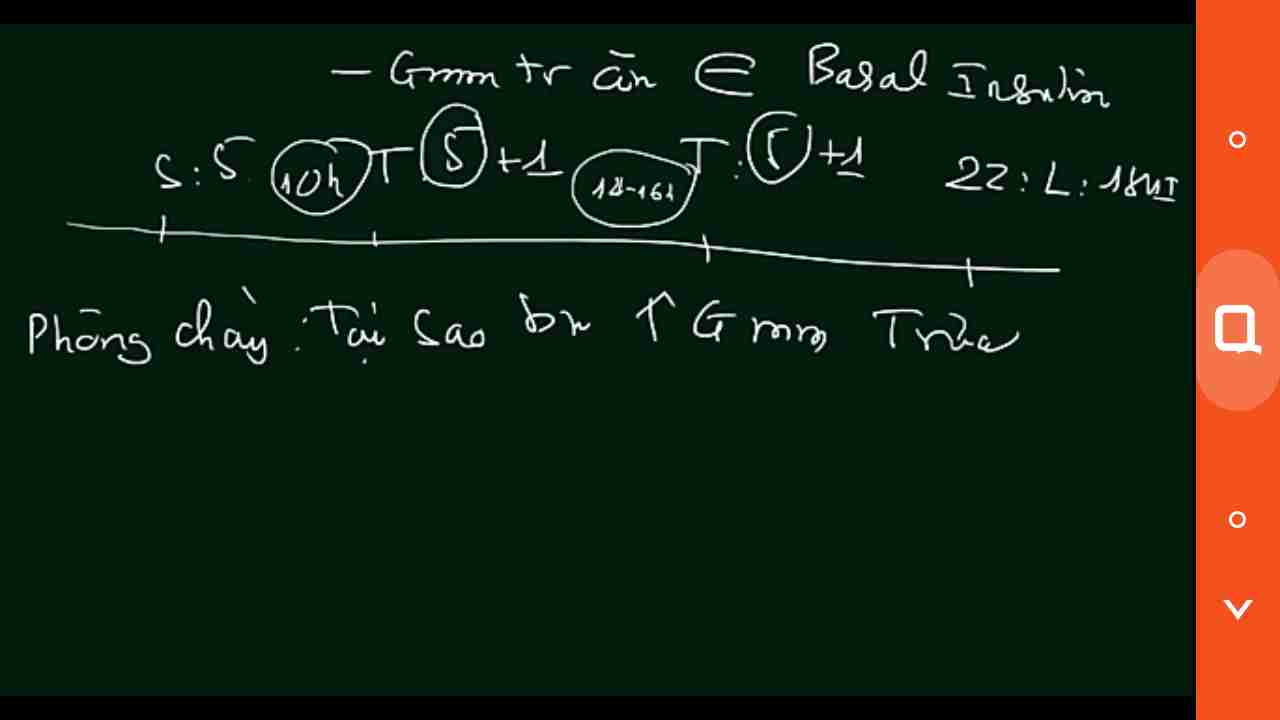 - Gmm tr ăn ∈ Basal Insulin
S: 5 10h T 5 +1 14-16h T: 5 +1 22: L: 18UI
Phòng chày: Tại sao bn ↑ Gmm Trưa